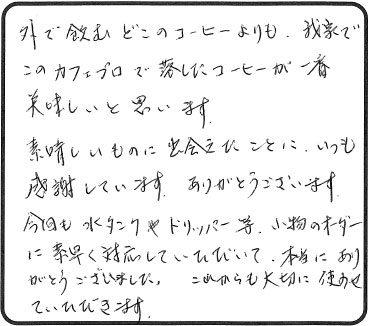 外で飲むどこのコーヒーよりも、我家で
このカフェプロで落したコーヒーが一番
美味しいと思います。
素晴しいものに出会えたことに、いつも
感謝しています。ありがとうございます。
今回も水タンクやドリッパー等、小物のオーダー
に素早く対応していただいて、本当にあり
がとうございました。これからも大切に使わせ
ていただきます。